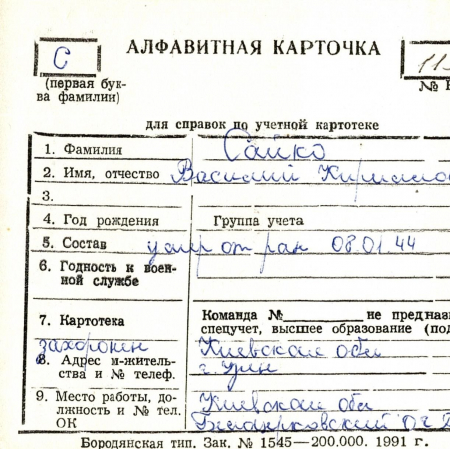 АЛФАВИТНАЯ КАРТОЧКА
С
(первая бук-
ва фамилии)
№
для справок по учетной картотеке
1. Фамилия Сайко
2. Имя, отчество Василий
3.
4. Год рождения Группа учета
5. Состав умер от ран 08.01.44
6. Годность к воен-
ной службе
7. Картотека Команда № не предназ
спецучет, высшее образование (под
захоронен Киевская обл
8. Адрес и-житель-
ства и № телеф.
9. Место работы, до- Киевская обл
должность и № тел.
ОК
Бородянская тип. Зак. № 1545—200.000. 1991 г.